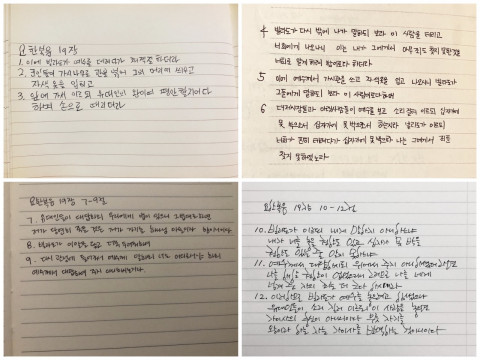 요한복음 19장
1. 이에 빌라도가 예수를 데려다가 채찍질 하더라
2. 군인들이 가시나무로 관을 엮어 그의 머리에 씌우고
자색 옷을 입히고
3. 앞에 가서 이르되 유대인의 왕이여 평안할지어다
하며 손으로 때리더라
4 빌라도가 다시 밖에 나가 말하되 보라 이 사람을 데리고
너희에게 나오나니 이는 내가 그에게서 아무 죄도 찾지 못한 것을
너희로 알게 하려 함이로라 하더라
5 이에 예수께서 가시관을 쓰고 자색옷을 입고 나오시니 빌라도가
그들에게 말하되 보라 이 사람이로다 하매
6 대제사장들과 아랫사람들이 예수를 보고 소리 질러 이르되 십자가에
못 박으소서 십자가에 못 박으소서 하는지라 빌라도가 이르되
너희가 친히 데려다가 십자가에 못 박으라 나는 그에게서 죄를
찾지 못하였노라
요한복음 19장 7-9절
7. 유대인들이 대답하되 우리에게 법이 있으니 그 법대로 하면
그가 당연히 죽을 것은 그가 자기를 하나님의 아들이라 함이니이다
8. 빌라도가 이 말을 듣고 더욱 두려워하여
9. 다시 관정에 들어가서 예수께 말하되 너는 어디로부터냐 하되
예수께서 대답하여 주지 아니하시는지라
요한복음 19장 10-12절
10. 빌라도가 이르되 내게 말하지 아니하느냐
내가 너를 놓을 권한도 있고 십자가에 못 박을
권한도 있는 줄 알지 못하느냐
11. 예수께서 대답하시되 위에서 주지 아니하셨더라면
나를 해할 권한이 없었으리니 그러므로 나를 네게
넘겨 준 자의 죄는 더 크다 하시니라
12. 이러하므로 빌라도가 예수를 놓으려고 힘썼으나
유대인들이 소리 질러 이르되 이 사람을 놓으면
가이사의 충신이 아니니이다 무릇 자기를
왕이라 하는 자는 가이사를 반역하는 것이니이다